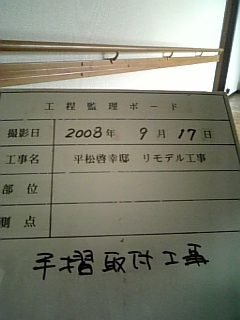 工程監理ボード
撮影日 2008年 9月 17日
工事名 平松啓幸邸 リモデル工事
部位
測点
手摺取付工事